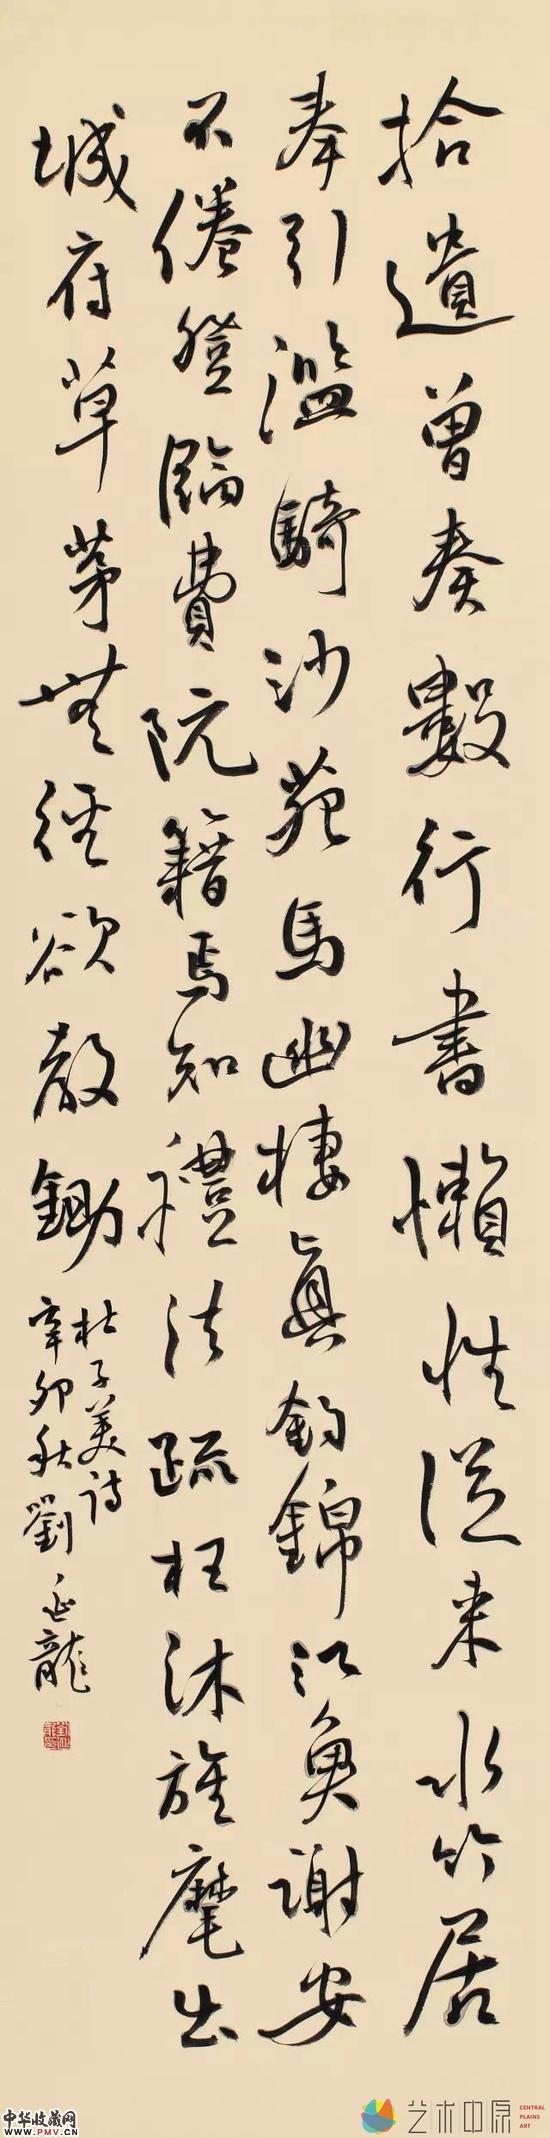 拾遺曾奏數行書懶性從来水竹居
奉引濫騎沙苑馬幽棲真釣錦江魚謝安
不倦登臨費阮籍焉知禮法疏枉沐旌麾出
城府草茅無徑欲教鋤
杜子美詩
辛卯秋劉延龍
中华收藏网
www.PMV.cn
艺术中原
CENTRAL
PLAINS
ART